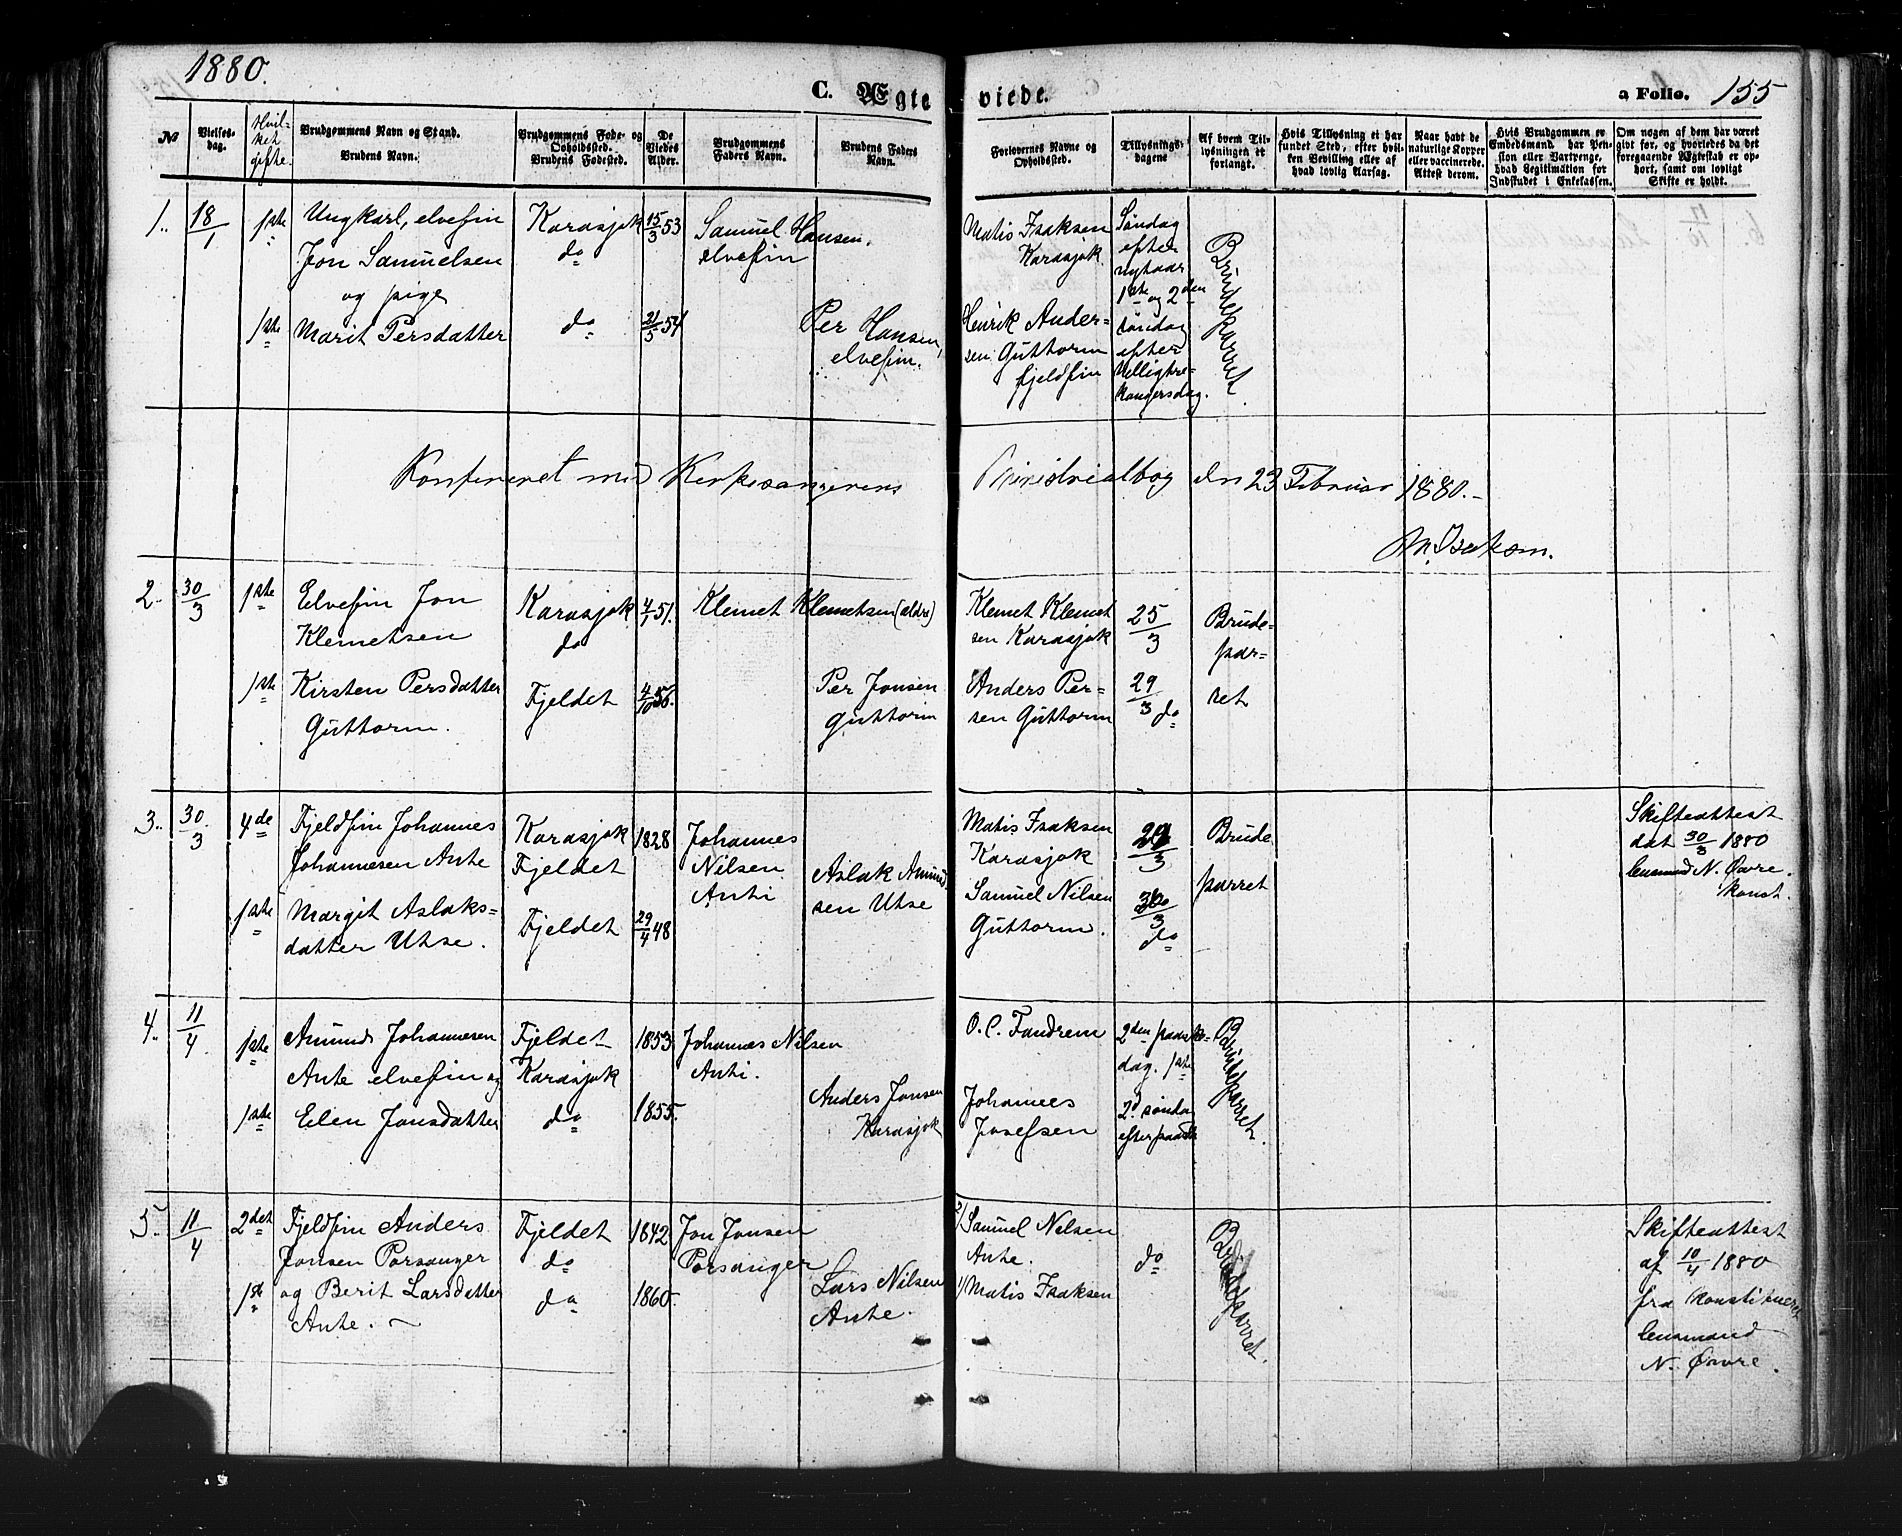 1880.
C. Ægte viede.
a Folio. 155
No
Vielses-
dag.
Hvil-
ket
gifte.
Brudgommens Navn og Stand.
Brudens Navn.
Brudgommens Føde- og
Opholdssted.
Brudens Fødested.
De
Viedes
Alder.
Brudgommens
Faders Navn.
Brudens Faders
Navn.
Forlovernes Navne og
Opholdssted.
Tillysnings-
dagene
Af hvem Til-
lysningen er
forlangt.
Hvis Tillysning ei har
fundet Sted, efter hvil-
ken Bevilling eller af
hvad lovlig Aarsag.
Naar havt de
naturlige Kopper
eller vaccinerede.
Attest derom.
Hvis Brudgommen er
Embedsmand, har Pen-
sion eller Vartpenge,
hvad Legitimation for
Indskudet i Enkekassen.
Om nogen af dem har været
gift før, og hvorledes da det
foregaaende Ægteskab er op-
hørt, samt om lovligt
Skifte er holdt.
1. 18/1
1ste
Ungkarl, elvefin
Jon Samuelsen
og pige
1ste
Marit Persdatter
Karasjok
do
do
15/3 53
21/5 54
Samuel Hansen,
elvefin
Per Hansen,
elvefin.
Matis Isaksen
Karasjok
Henrik Ander-
sen Guttorm
fjeldfin
Søndag
efter
nytaar
1ste og 2den
søndag
efter
Helligtre-
kongersdag.
Brudeparret
Konfereret med Kirkesangerens Ministerialbog den 23 Februar 1880.-
M. Isaksen.
2. 30/3
1ste
Elvefin Jon
Klemetsen
1ste
Kirsten Persdatter
Guttorm.
Karasjok
do
Fjeldet
4/1 51.
4/10 56.
Klemet Klemetsen (ældre)
Per Jonsen
Guttorm
Klemet Klemet
sen Karasjok
Anders Per-
sen Guttorm
25/3
29/3 do
Brude-
par-
ret
3. 30/3
4de
Fjeldfin Johannes
Johannesen Ante
1ste
Margit Aslaks-
datter Utse.
Karasjok
Fjeldet
Fjeldet
1828
29/4 48
Johannes
Nilsen
Anti
Aslak Amund
sen Utse
Matis Isaksen
Karasjok
Samuel Nilsen
Guttorm.
29/3
30/3
do
Brude
parret
Skifteattest
dat 30/3 1880
lensmand N. Øvre.
konst.
4. 11/4
1ste
Amund Johannesen
Ante elvefin og
1ste
Elen Jonsdatter
Fjeldet
Karasjok
do
1853
1855.
Johannes Nilsen
Anti.
Anders Jonsen
Karasjok
O. C. Fandrem
Johannes
Josefsen
2den paaske-
dag. 1ste
2d søndag
efter paaske
Brudeparret.
5. 11/4
2det
Fjeldfin Anders
Jonsen Porsanger
1ste
og Berit Larsdatter
Ante. ~
Fjeldet
do
do
1842
1860.
Jon Jonsen
Porsanger
Lars Nilsen
Ante.
2/ Samuel Nilsen
Ante.
1/ Matis Isaksen
do
Brudeparret.
Skifteattest
af 10/4 1880
fra konstitueret
lensmand
N. Øvre.